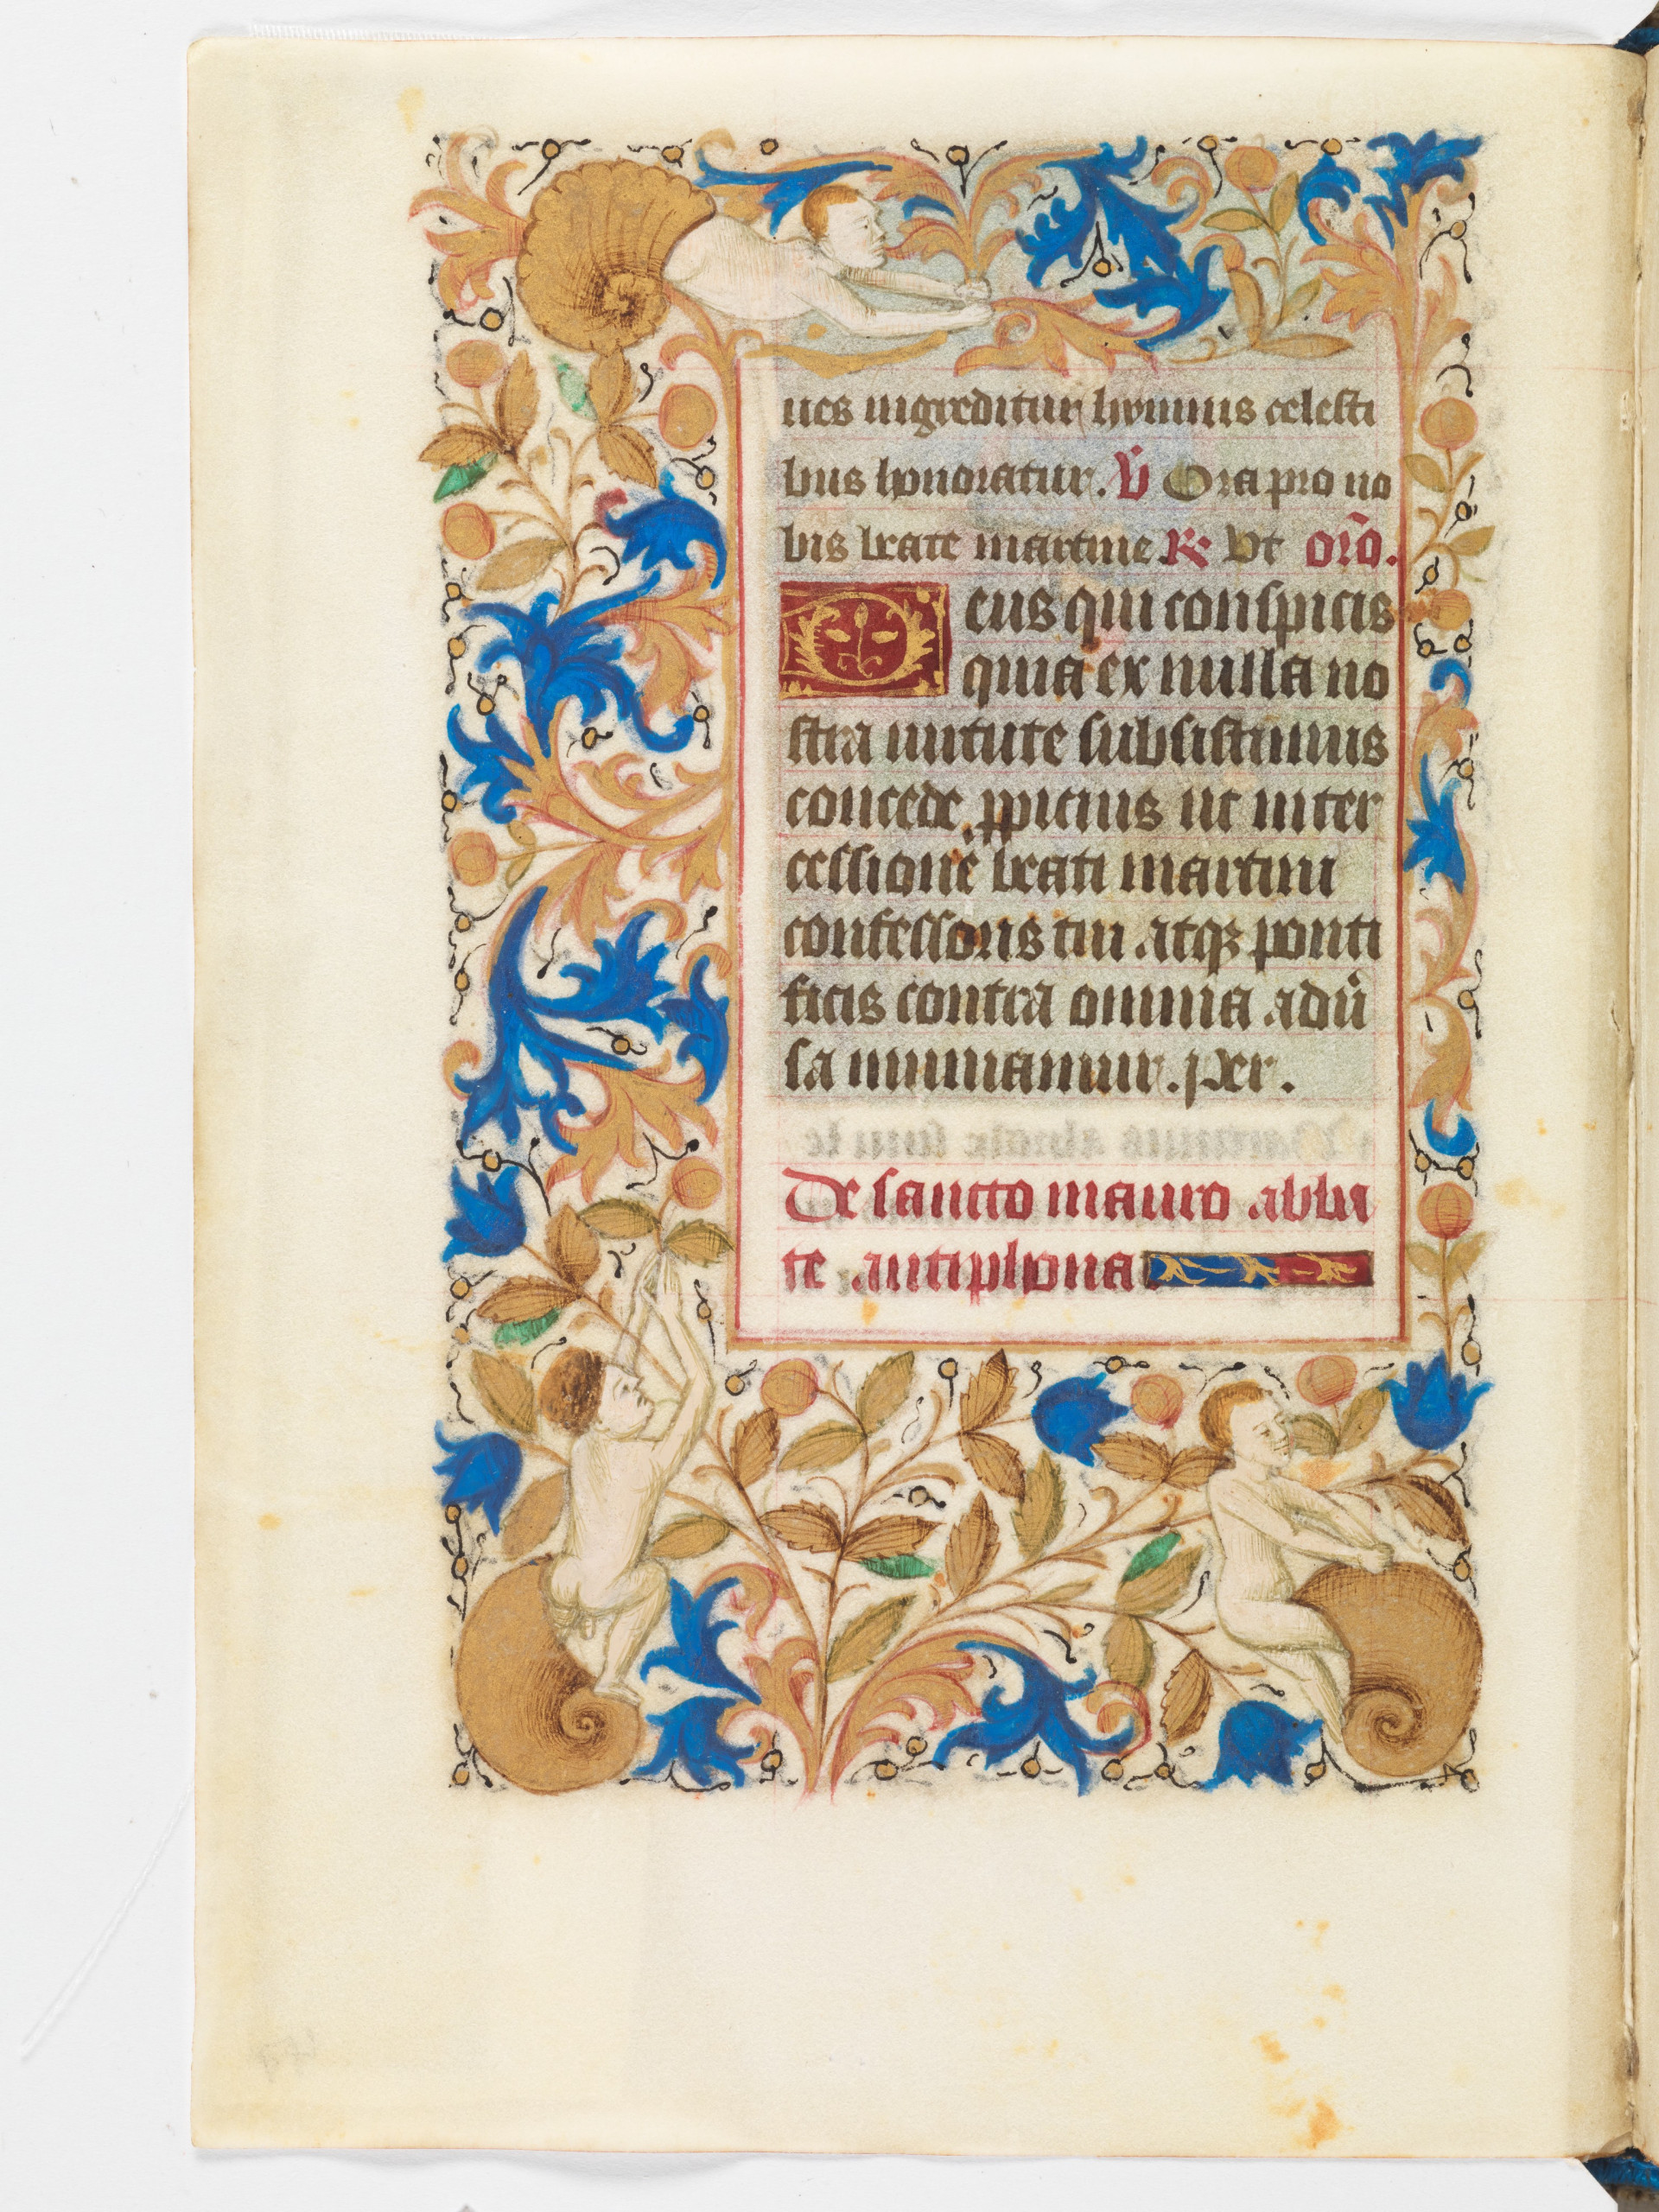 ues ingreditur hymnis celesti
bus honoratur. V̇ Ora pro no
bis beate martine R Ut oro̅.
Deus qui conspicis
quia ex nulla no
stra uirtute subsistimus
concede ꝓpicius ut inter
cessione beati martini
confessoris tui atqꝫ ponti
ficis contra omnia adu̅
sa muniamur. pxr.
De sancto mauro abba
te antiphona